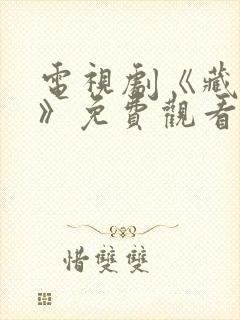 電視劇《藏
》免費觀看
惜雙雙